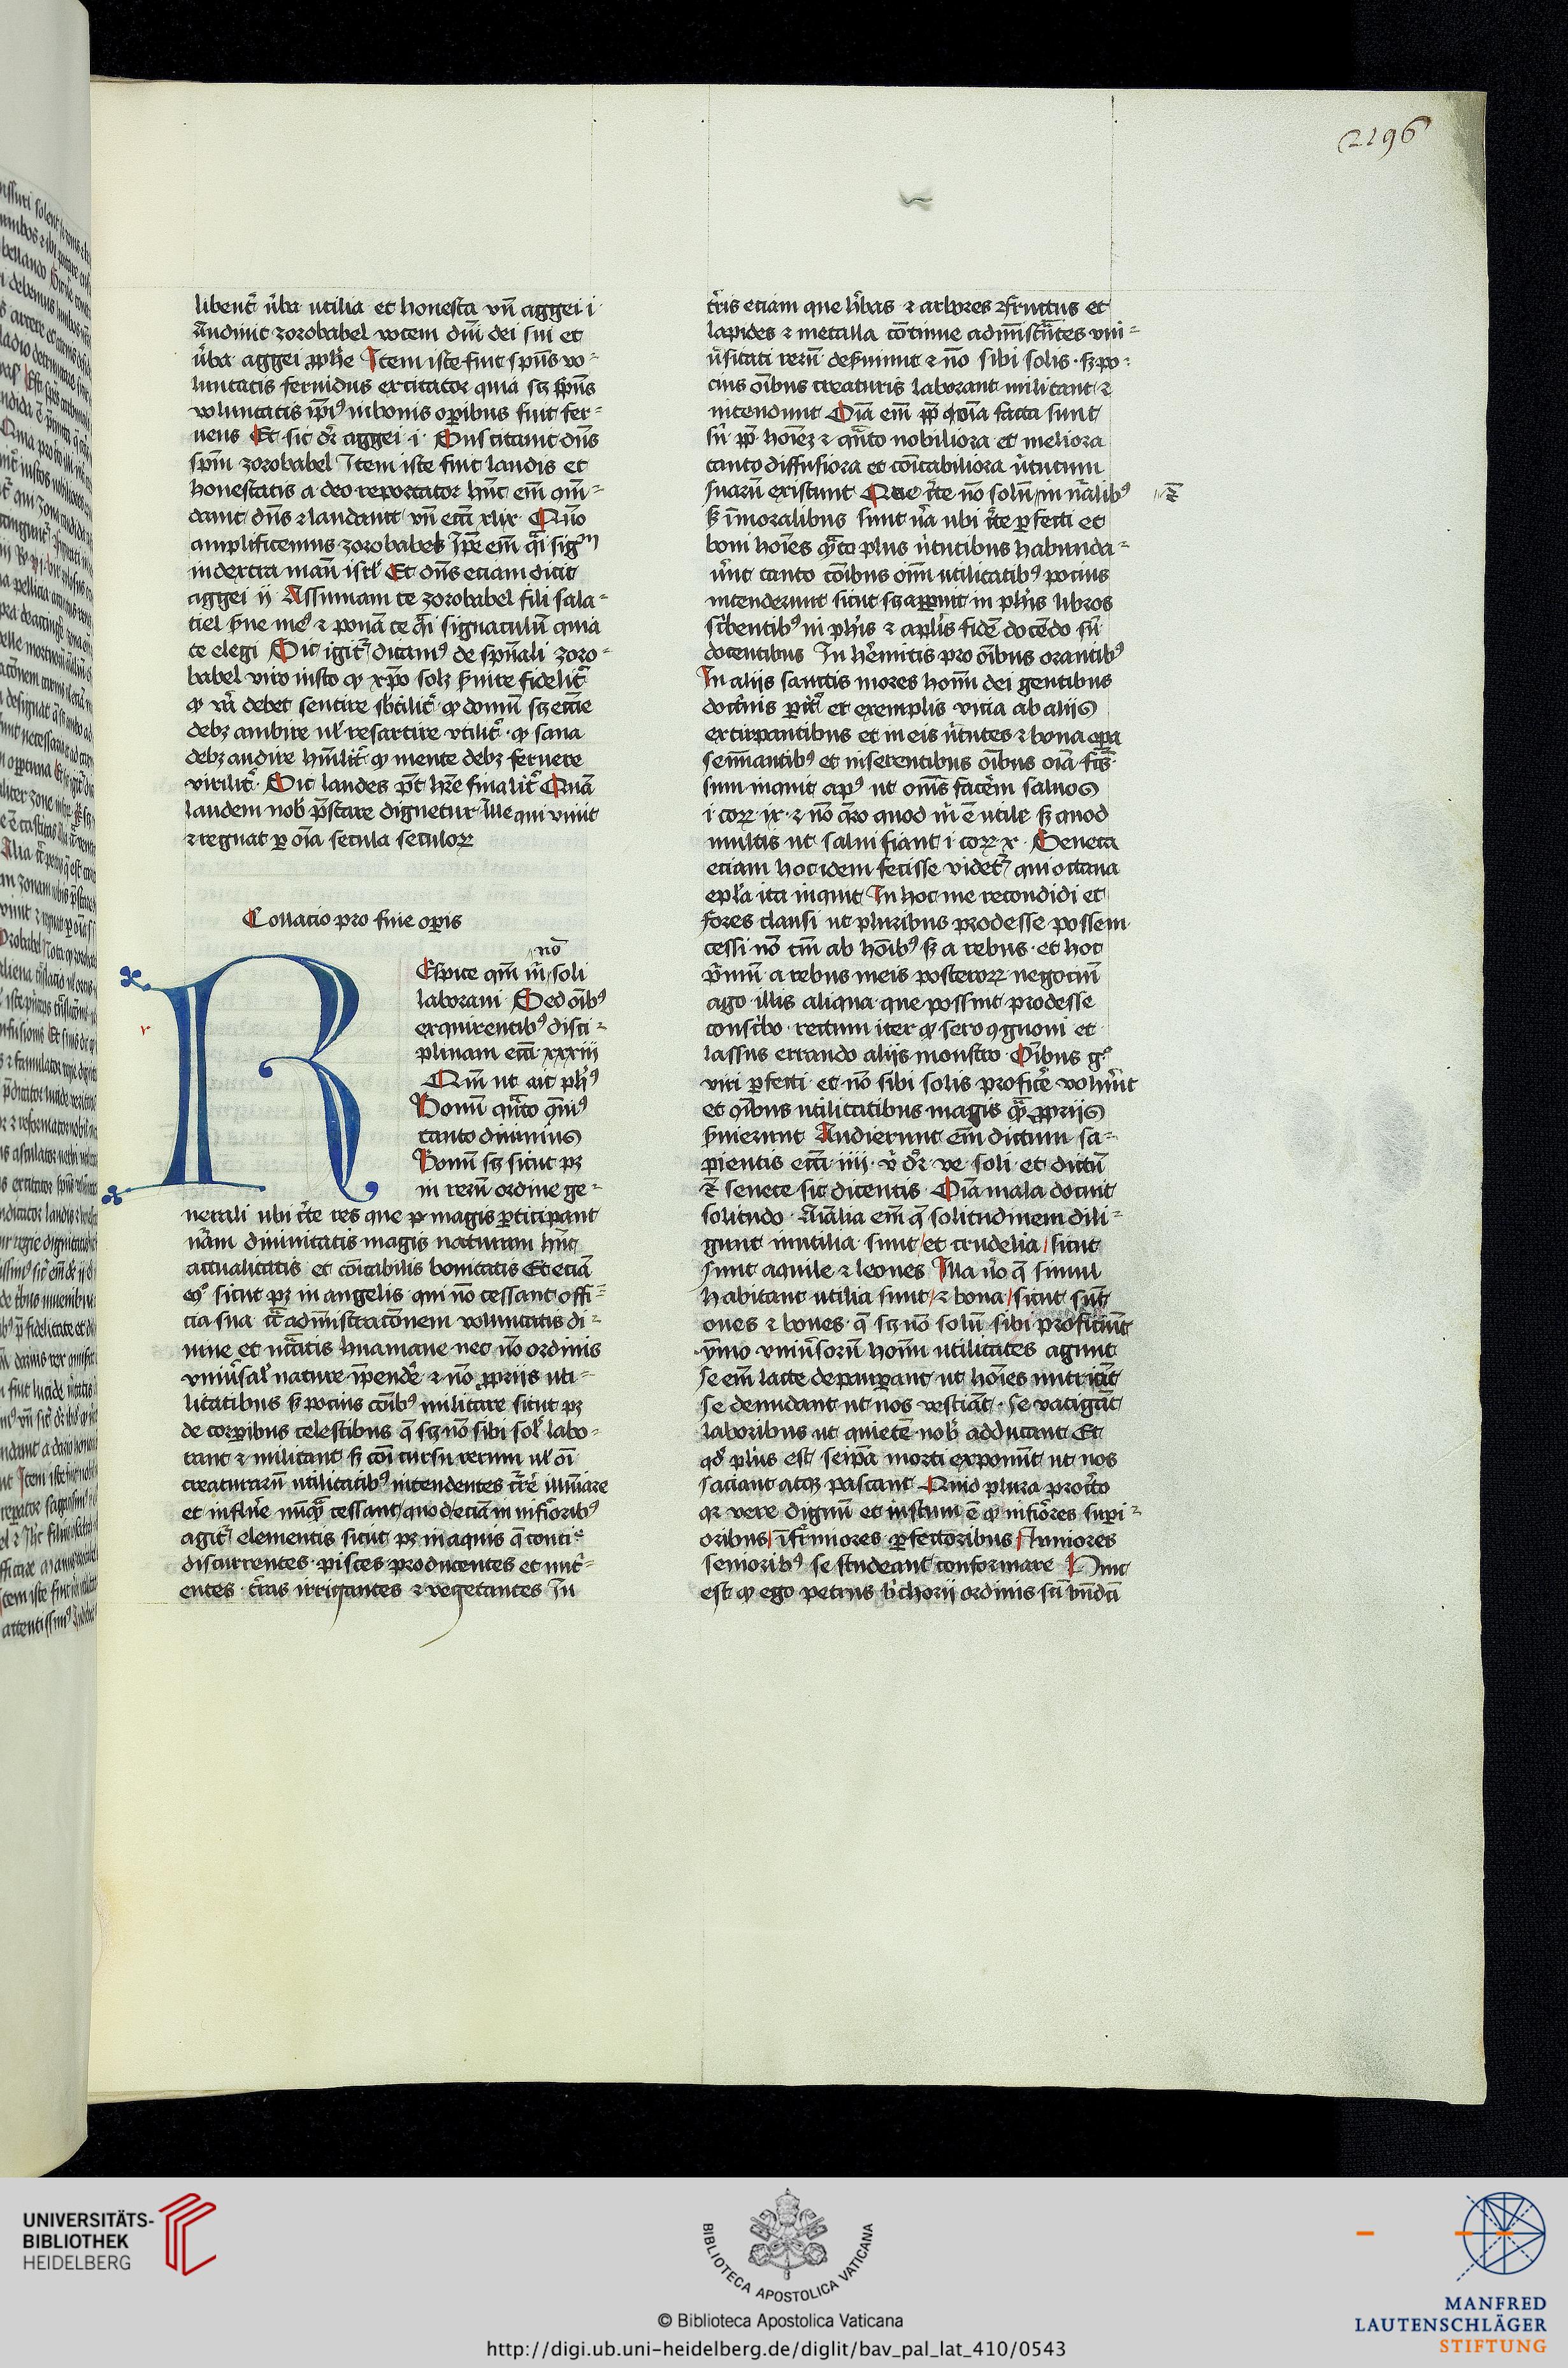 2196
libent̃ ũba utilia et honesta vñ aggei i
Audiuit zorobabel vocem dñi dei sui et
ũba aggei ꝓphe Item iste fuit spũs vo⸗
luntatis feruidus excitator quia sꝫ spũs
voluntatis ip̃iꝰ in bonis oꝑibus fuit fer⸗
uens Et sic dr̃ aggei i Suscitauit dñs
spm̃ zorobabel Item iste fuit laudis et
honestatis a deo reportator hũc em̃ qm̃⸗
dauit dñs et laudauit vñ ecc̃i xlix Quõ
amplificemus zorobabel Ip̃e em̃ q̃i sigᵐ
in dextra manu isrl̃ Et dñs etiam dicit
aggei ij Assumam te zorobabel fili sala⸗
tiel ẜue meꝰ et ponã te q̃i signaculũ quia
te elegi Sic igit̃ dicamꝰ de spũali zoro⸗
babel viro iusto ꝙ xp̃o solꝫ ẜuire fidelit̃
ꝙ debet sentire sbtilit̃ ꝙ domũ sꝫ eccĩe
debꝫ ambire ul̃ resartire vtilit̃ ꝙ sana
debꝫ audire hũilit̃ ꝙ mente debꝫ feruere
virilit̃ Sic laudes põt hr̃e finalit̃ Quã
laudem nob̃ p̃stare dignetur Ille qui viuit
et regnat ꝑ oĩa secula seculoꝝ
Collacio pro fine oꝑis
nõ
REspice qm̃ m̃ soli
laboraui Sed oĩbꝰ
exquirentibꝰ disci⸗
plinam ecc̃i xxxiij
Qm̃ ut ait ph̃ꝰ
Bonũ qñto
tanto diuinius
Bonũ sꝫ sicut pꝫ
in rerũ ordine ge⸗
nerali ubi cẽte res que ꝑ magis ꝑticipant
nãm diuinitatis magis naturam hñt
actualitatis et cõicabilis bonitatis Et eciã
sicut pꝫ in angelis qui nõ cessant offi⸗
cia sua adm̃istracõnem voluntatis di⸗
uine et humane nec nõ ordinis
vniũsal̃ nature ĩpendẽ et nõ ꝓprijs uti⸗
litatibus ẜ pocius cõibꝰ militare sicut pꝫ
de corꝑibus celestibus q̃ sꝫ nõ sibi sol̃ labo⸗
rant et militant ẜ cõi cursu rerum ul̃ oĩ
creaturarũ utilitatibꝰ intendentes illuĩare
et influẽre nũqᷓ cessant quod eciã in infẽoribꝰ
agit̃ elementis sicut pꝫ in aquis q̃ conti
discurrentes pisces producentes et nut̃⸗
entes t̃ras irrigantes et vegetantes In
t̃ris eciam que h̃bas et arbores et fructus et
lapides et metalla cõtinue adm̃istrãtes uni⸗
ũsitati rerũ deẜuiunt et nõ sibi solis ẜ po⸗
cius oĩbus creaturis laborant militant et
intendunt Oĩa em̃ ꝓp̃ facta sunt
ꝓp̃ hoĩeꝫ et qñto nobiliora et meliora
tanto diffusiora et cõicabiliora ũtutum
suarũ existunt Que cẽte nõ solũ in nãlibꝰ
ẜ ĩ moralibus sunt ubi cẽte ꝑfecti et
boni hoĩes qᷓto plus ũtutibus habunda⸗
ũnt tanto cõibus oĩm utilitatibꝰ pocius
intenderunt sicut sꝫ apparuit in ph̃is libros
sc̃bentibꝰ in ph̃is et apl̃is fidẽ docẽdo sũ
docentibus In h̃emitis pro oĩbus orantibꝰ
In alijs sanctis mores hoĩm dei gentibus
doct̃nis ꝑit̃ et exemplis vicia ab alijs
extirpantibus et in eis ũtutes et bona oꝑa
semĩantibꝰ et inserentibus oĩbus oĩa fc̃s
sum inquit apꝰ ut oẽs facẽrm saluos
i coꝝ ix et nõ q̃ro quod m̃ ẽ utile ẜ quod
multis ut salui fiant i coꝝ x Seneca
eciam hoc idem fecisse videt̃ qui octaua
epl̃a ita inquit In hoc me recondidi et
fores clausi ut pluribus prodesse possem
cessi nõ tm̃ ab hoĩbꝰ ẜ a rebus et hoc
p̃mũ a rebus meis posteroꝝ negociũ
ago illis aliqua que possint prodesse
consc̃bo rectum iter ꝙ sero ꝯgnoui et
lassus errando alijs monstro Oĩbus gͦ
viri ꝑfecti et nõ sibi solis proficẽ volũnt
et cõibus utilitatibus magis qᷓ ꝓprijs
ẜuierunt Audierunt em̃ dictum sa⸗
pientis ecc̃i iiij dr̃ ve soli et dictũ
senece sic dicentis Oĩa mala docuit
solitudo Aĩalia em̃ q̃ solitudinem dili⸗
gunt inutilia sunt et crudelia sicut
sunt aquile et leones Illa ũo q̃ simul
habitant utilia sunt et bona sicut sũt
oues et boues q̃ sꝫ nõ solũ sibi proficiũt
ymo vniũsorũ hoĩm utilitates agunt
se em̃ lacte depauꝑant ut hoĩes nutriãt
se denudant ut nos vestiãt se vatigãt
laboribus ut quietẽ nob̃ adducant Et
qd̃ plus est seip̃a morti exponũt ut nos
saciant atqꝫ pascant Quid plura
vere dignũ et iustum ẽ ꝙ infẽores supi⸗
oribus ĩfirmiores ꝑfectioribus Iuniores
senioribꝰ se studeant conformare Hinc
est ꝙ ego petrus b̃chorij ordinis sc̃i bñdc̃i
UNIVERSITÄTS-
BIBLIOTHEK
HEIDELBERG
BIBLIOTECA APOSTOLICA VATICANA
© Biblioteca Apostolica Vaticana
http://digi.ub.uni-heidelberg.de/diglit/bav_pal_lat_410/0543
MANFRED
LAUTENSCHLÄGER
STIFTUNG